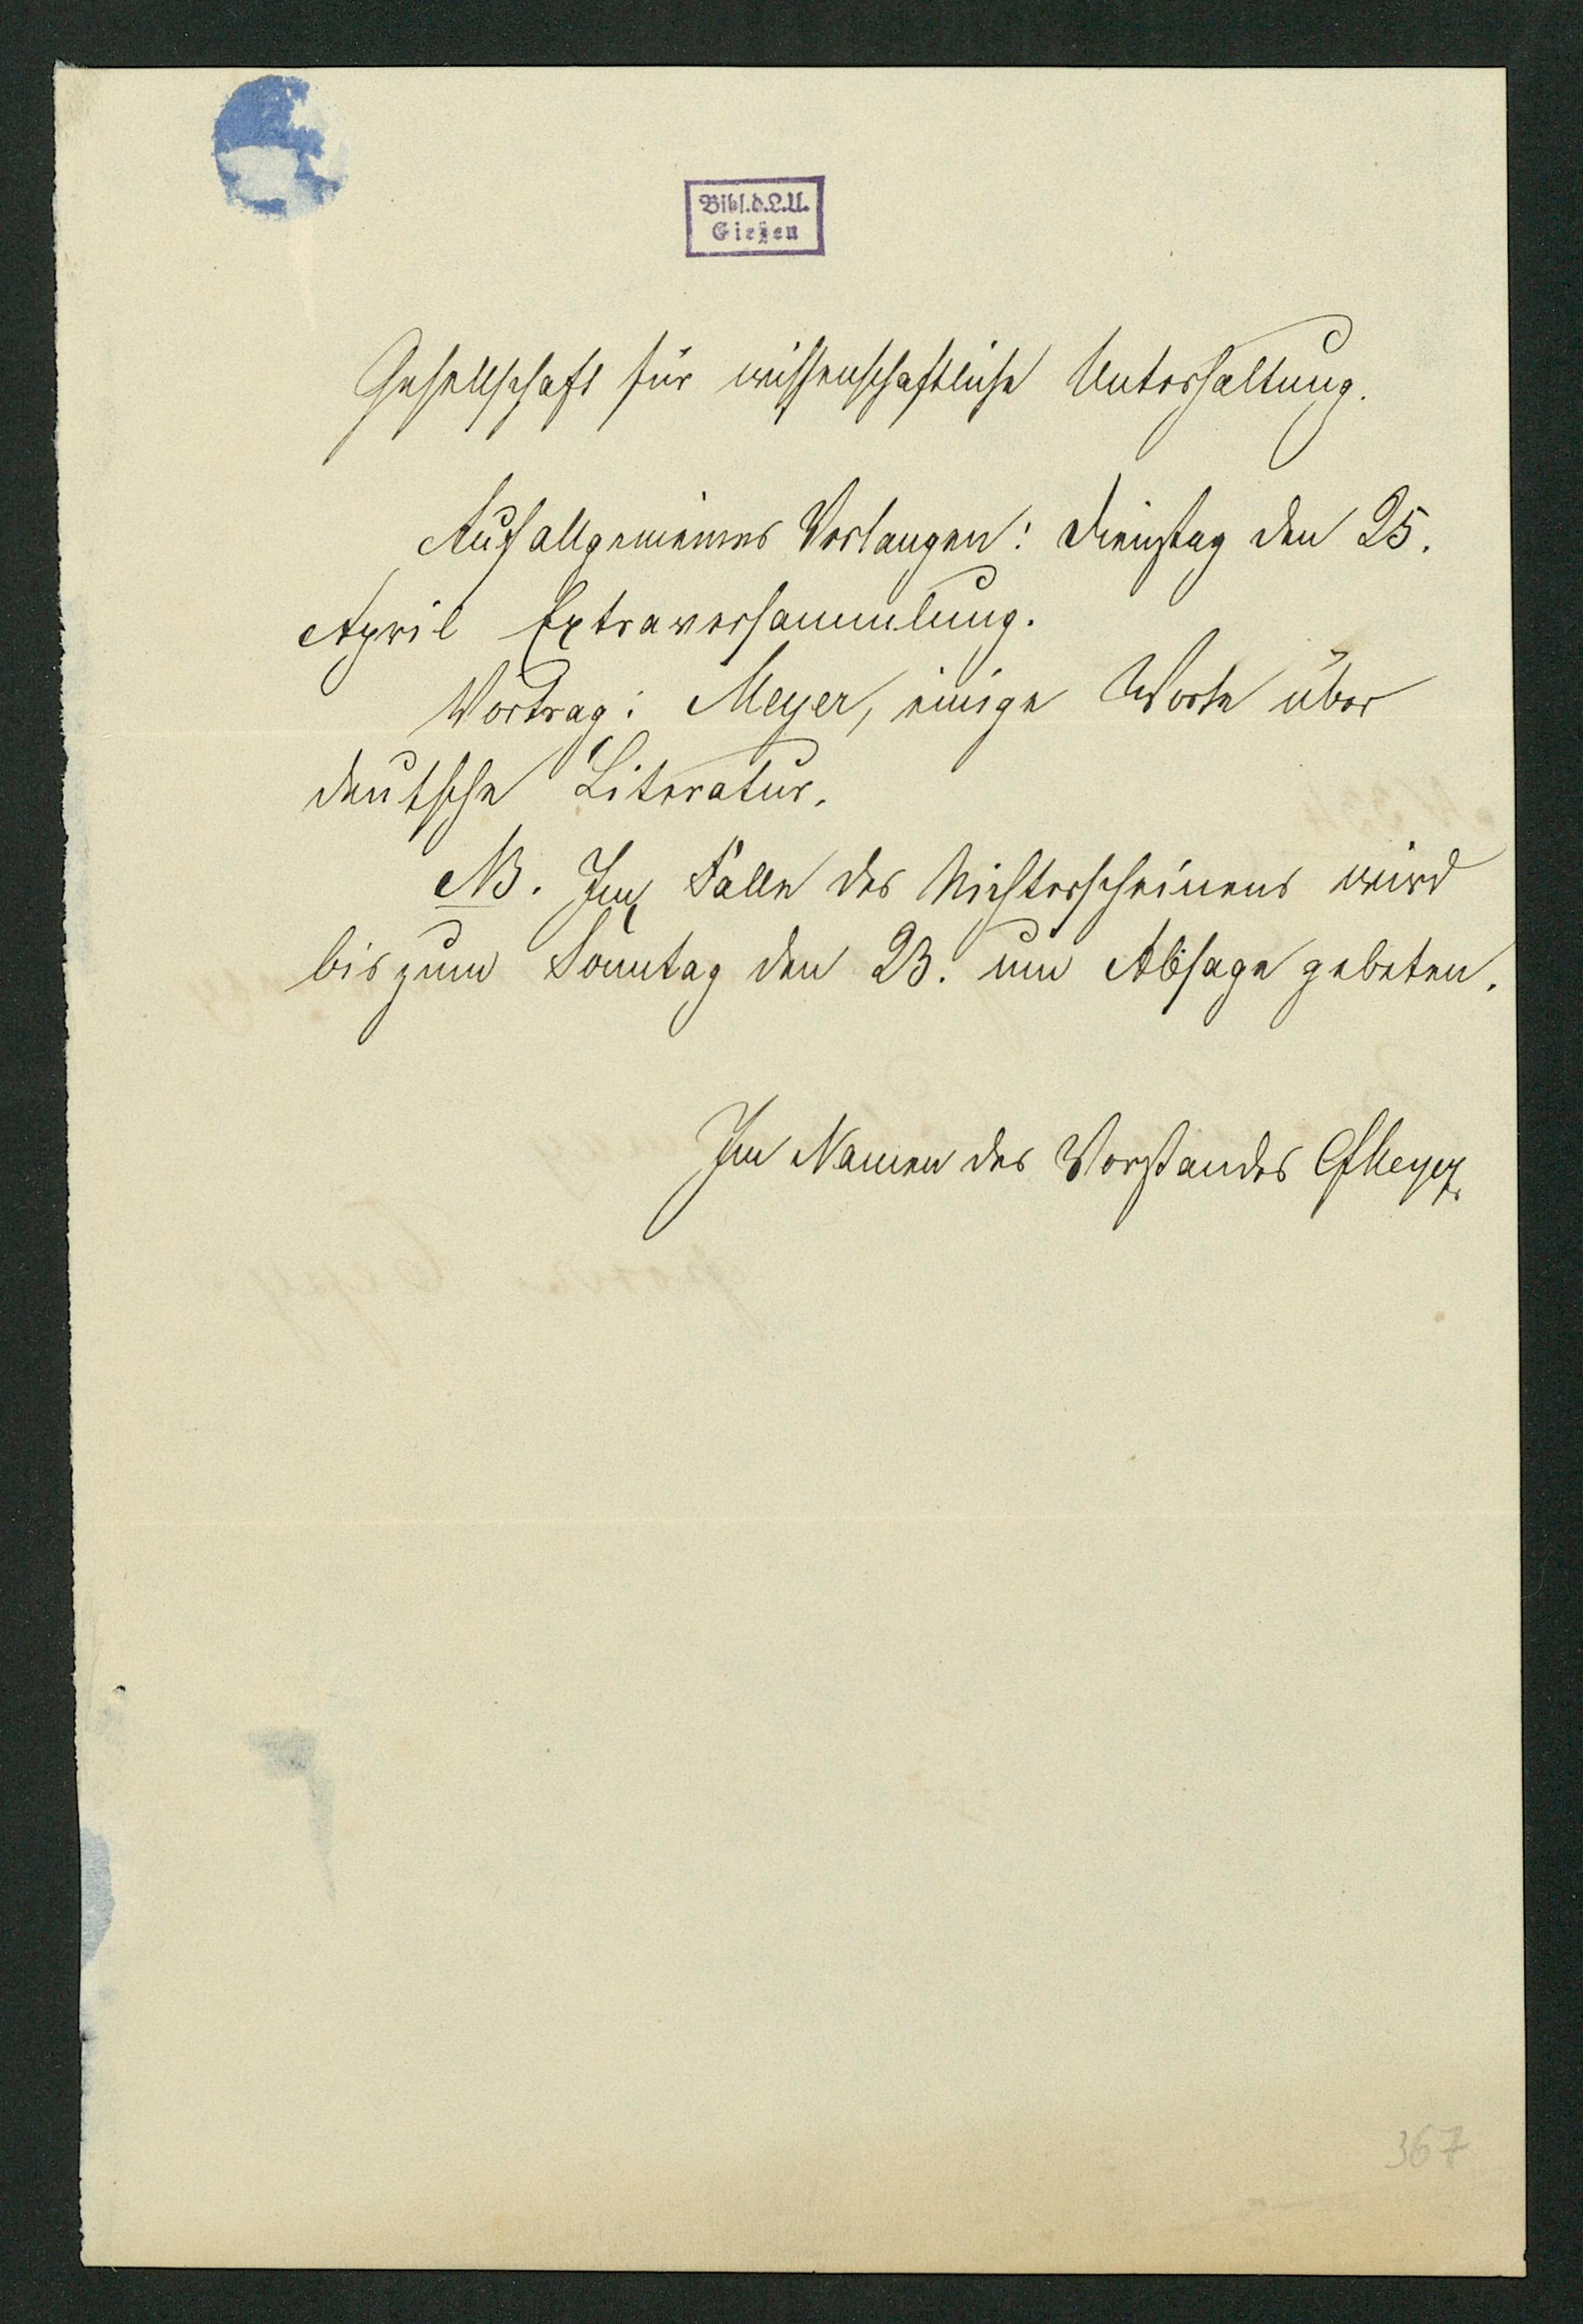 Bibl.d.L.U.
Gießen
Gesellschaft für wissenschaftliche Unterhaltung.
Auf allgemeines Verlangen: Dienstag den 25.
April Extraversammlung.
Vortrag: Meyer, einige Worte über
deutsche Literatur.
NB. Im Falle des Nichterscheinens wird
bis zum Sonntag den 23. um Absage gebeten.
Im Namen des Vorstandes Meyer
367